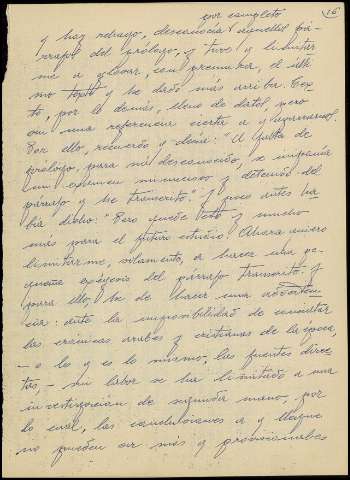 16
por completo
y hay rezago, desconocía aquellos pá-
rrafos del prólogo, y tuve q limitar
me a glosar, con premura, el últi
mo texto q he dado más arriba. Tex-
to, por lo demás, lleno de datos, pero
con una referencia cierta a
Por ello, recuerdo q decía: "A falta de
prólogo, para mí desconocido, se imponía
un examen minucioso y detenido del
párrafo q he transcrito." Y poco antes ha
bía dicho: "Pero quede esto y mucho
más para el futuro estudio. Ahora quiero
limitarme, solamente, a hacer una pe-
queña exégesis del párrafo transcrito. Y
para ello, he de hacer una adverten-
cia: ante la imposibilidad de consultar
las crónicas árabes y cristianas de la época,
- o lo q es lo mismo, las fuentes direc
tas, - mi labor se ha limitado a una
investigación de segunda mano, por
lo cual, las conclusiones a q llegue
no pueden ser más q provisionales